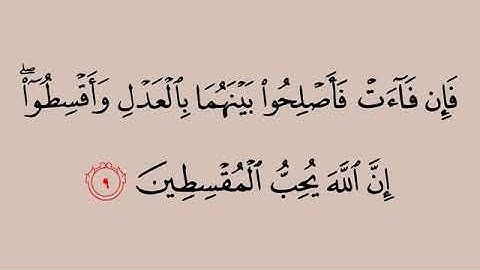 فَإِن فَآءَتۡ فَأَصۡلِحُواْ بَيۡنَهُمَا بِٱلۡعَدۡلِ وَأَقۡسِطُوٓاْۖ
إِنَّ ٱللَّهَ يُحِبُّ ٱلۡمُقۡسِطِينَ ٩